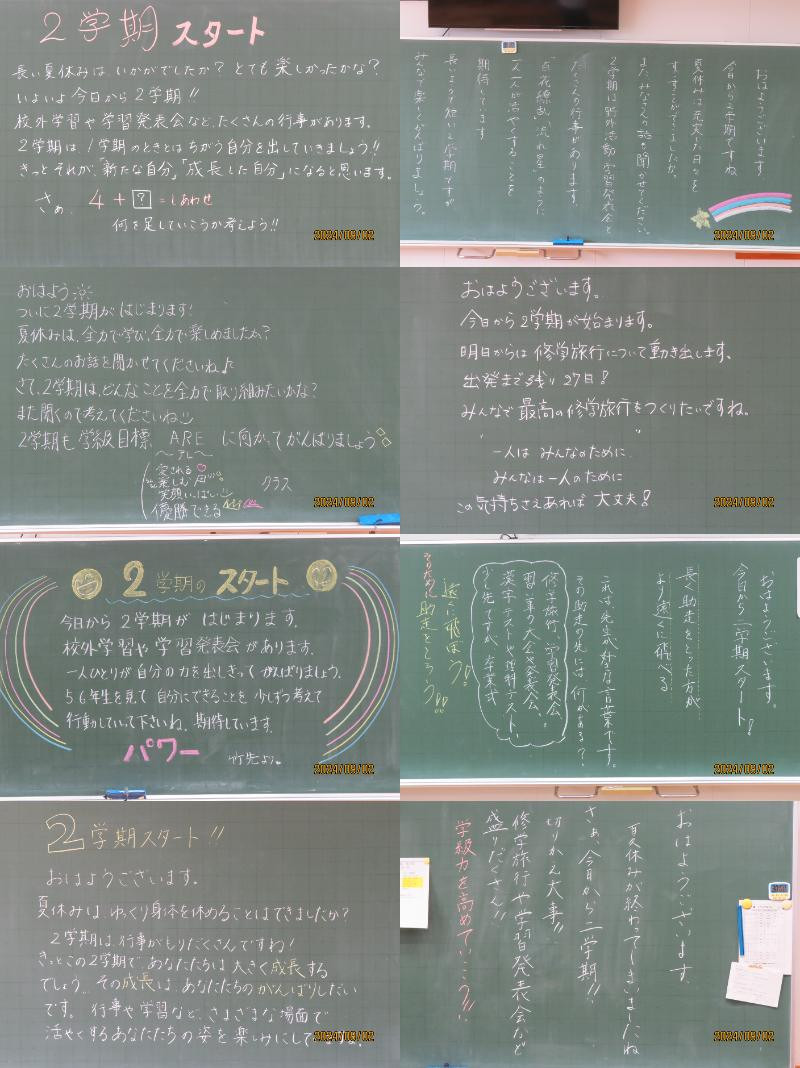 ２学期 スタート
長い夏休みは、いかがでしたか？とても楽しかったかな？
いよいよ今日から２学期!!
校外学習や学習発表会など、たくさんの行事があります。
２学期は、１学期のときとはちがう自分を出していきましょう!!
きっとそれが、「新たな自分」「成長した自分」になると思います。
さぁ、 4 + ? = しあわせ
何を足していこうか考えよう!!
2024/09/02
おはようございます。
今日から２学期ですね。
夏休みは充実した日々を
すごすことができましたか。
またみなさんの話を聞かせてください。
２学期は野外活動、学習発表会と
たくさんの行事があります。
百花繚乱、流れ星のように
一人一人が活やくすることを
期待しています
長いようで短い２学期ですが
みんなで楽しくがんばりましょう。
2024/09/02
おはよう
ついに２学期がはじまります！
夏休みは、全力で学び、全力で楽しめましたか？
たくさんのお話を聞かせてくださいね♪
さて、２学期は、どんなことを全力で取り組みたいかな？
また聞くので考えてくださいね
２学期も学級目標 ARE に向かってがんばりましょう
〜アレ〜
愛される
楽しむ
笑顔いっぱい
優勝できる
クラス
2024/09/02
おはようございます。
今日から２学期が始まります。
明日からは修学旅行について動き出します。
出発まで残り２７日！
みんなで最高の修学旅行をつくりたいですね。
"一人はみんなのために
みんなは一人のために"
この気持ちさえあれば大丈夫！
2024/09/02
２学期のスタート
今日から２学期がはじまります。
校外学習や学習発表会があります。
一人ひとりが自分の力を出しきってがんばりましょう。
５６年生を見て自分にできることを少しずつ考えて
行動していって下さいね。期待しています。
パワー
竹先より。
2024/09/02
おはようございます。
今日から二学期スタート！
長く助走をとった方が
より遠くに飛べる
これは先生が好きな言葉です。
その助走の先には何がある？
修学旅行、学習発表会、
習い事の大会や発表会、
漢字テストや理科テスト、
少し先ですが、卒業式
遠くに飛ぼう！
そのために助走をとろう!!
2024/09/02
２学期スタート!!
おはようございます。
夏休みは、ゆっくり身体を休めることはできましたか？
２学期は、行事がもりだくさんですね！
きっとこの２学期で、あなたたちは大きく成長する
でしょう。その成長は、あなたたちのがんばりしだい
です。行事や学習など、さまざまな場面で
活やくするあなたたちの姿を楽しみにして
2024/09/02
おはようございます。
夏休みが終わってしまいましたね
さぁ、今日から二学期!!
切りかえ大事!!
修学旅行や学習発表会など
盛りだくさん!!
学級力を高めていこう!!
2024/09/02